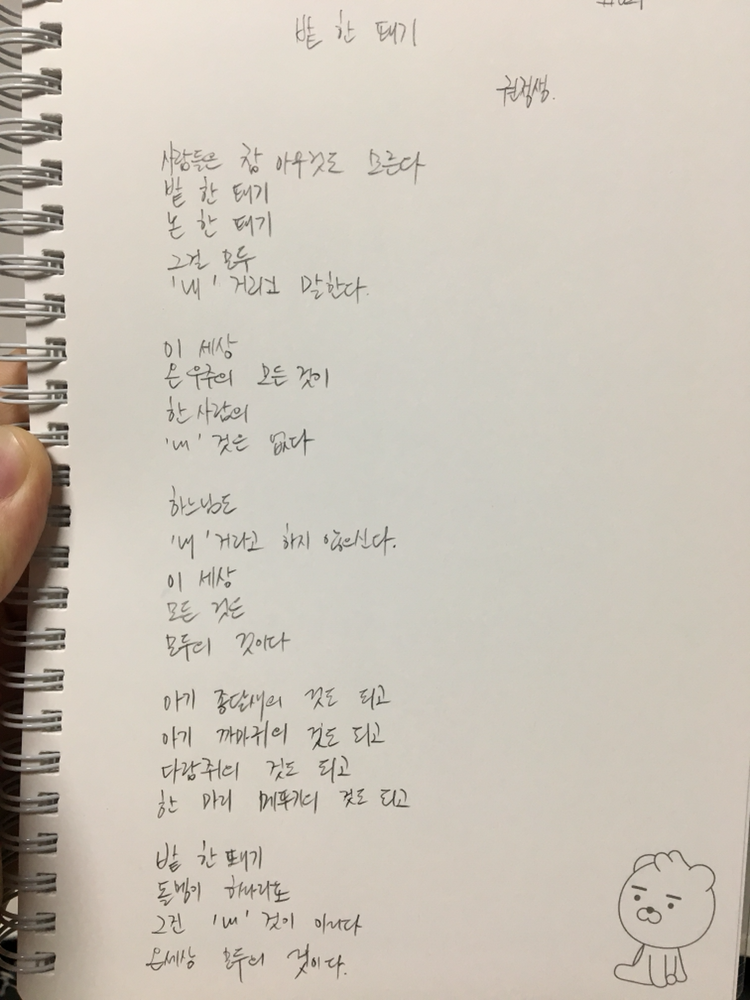 밭 한 뙈기
권정생.
사람들은 참 아무것도 모른다
밭 한 뙈기
논 한 뙈기
그걸 모두
'내' 거라고 말한다.
이 세상
온 우주의 모든 것이
한 사람의
'내' 것은 없다
하느님도
'내' 거라고 하지 않으신다.
이 세상
모든 것은
모두의 것이다
아기 종달새의 것도 되고
아기 까마귀의 것도 되고
다람쥐의 것도 되고
한 마리 메뚜기의 것도 되고
밭 한 뙈기
돌멩이 하나라도
그건 '내' 것이 아니다
온세상 모두의 것이다.